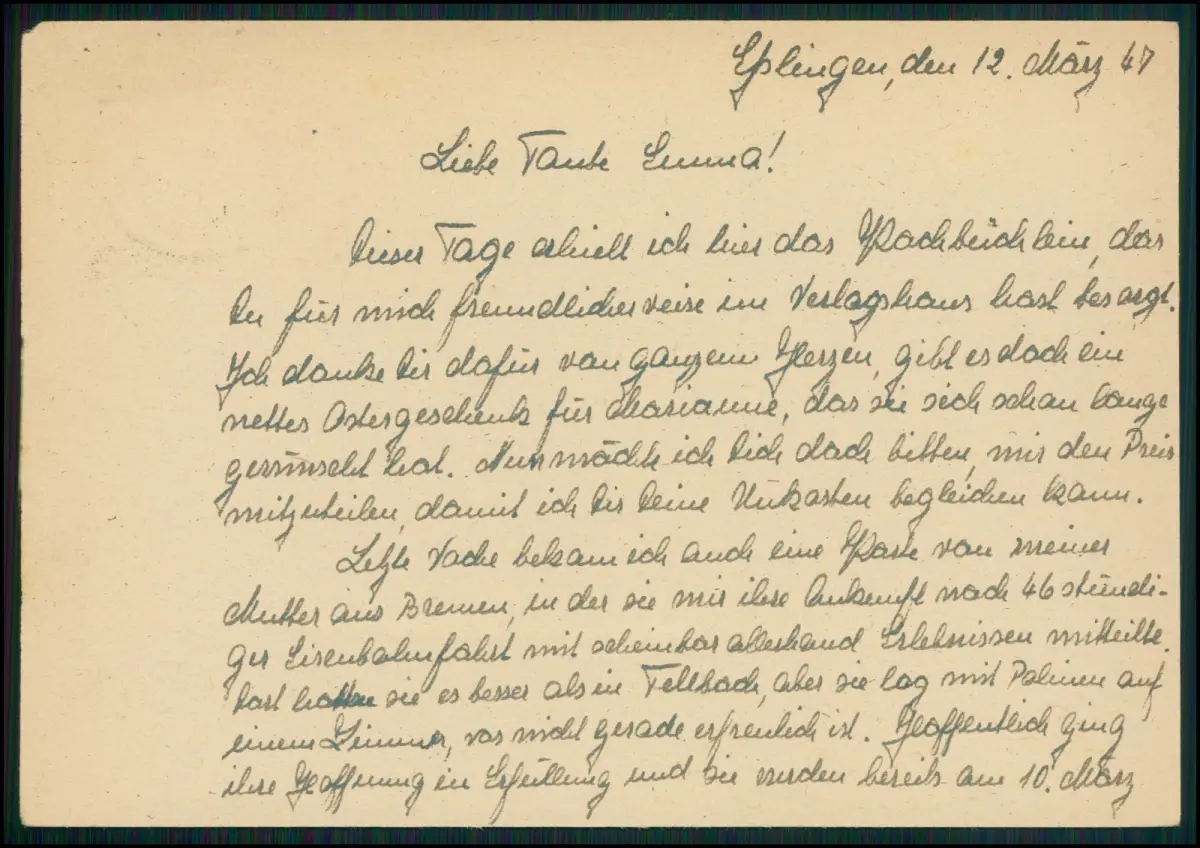 Eßlingen, den 12. März 47
Liebe Tante Emma!
Dieser Tage erhielt ich hier das Kochbüchlein, das
Du für mich freundlicherweise im Verlagshaus hast besorgt.
Ich danke Dir dafür von ganzem Herzen, gibt es doch ein
nettes Ostergeschenk für Marianne, das sie sich schon lange
gewünscht hat. Nun möchte ich Dich doch bitten, mir den Preis
mitzuteilen, damit ich Dir Deine Unkosten begleichen kann.
Letzte Woche bekam ich auch eine Karte von meiner
Mutter aus Bremen, in der sie mir ihre Ankunft nach 46 stündi-
ger Eisenbahnfahrt mit scheinbar allerhand Erlebnissen mitteilte.
Dort hatten sie es besser als in Fellbach, aber sie lag mit Polinnen auf
einem Zimmer, was nicht gerade erfreulich ist. Hoffentlich ging
ihre Hoffnung in Erfüllung und sie wurden bereits am 10. März